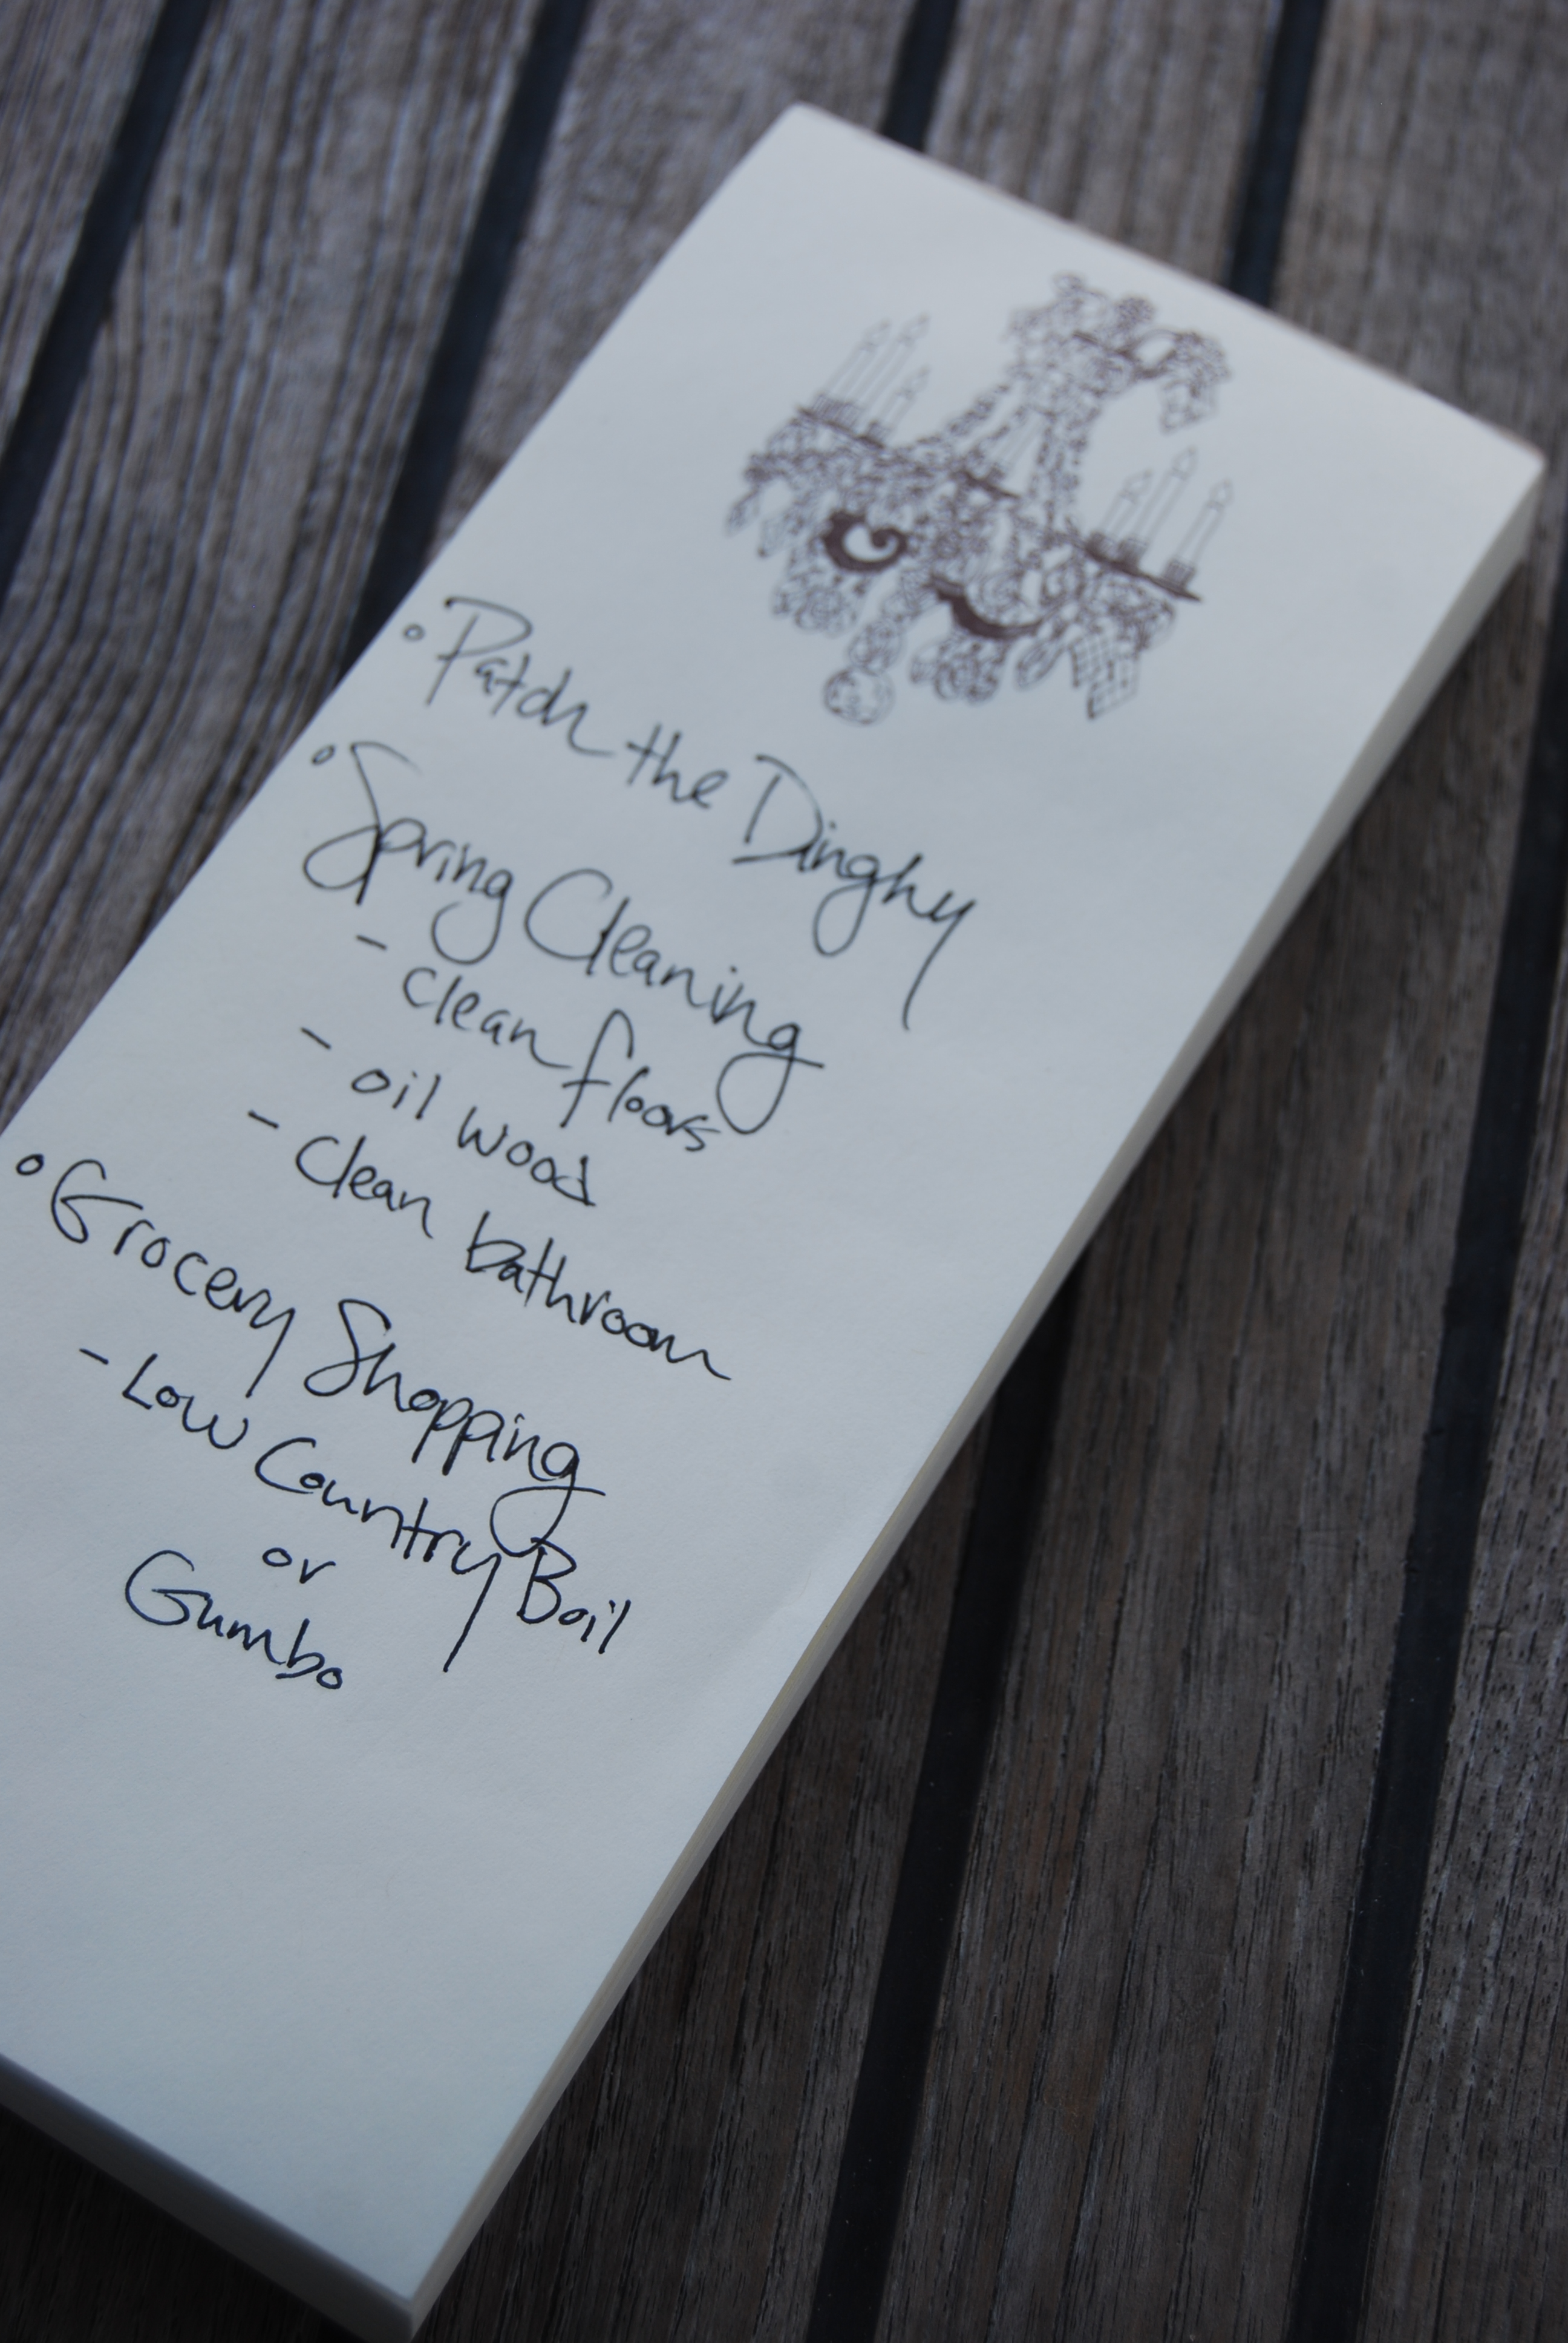 ° Patch the Dinghy
° Spring Cleaning
- clean floors
- oil wood
- Clean bathroom
° Grocery Shopping
- Low Country Boil
or
Gumbo